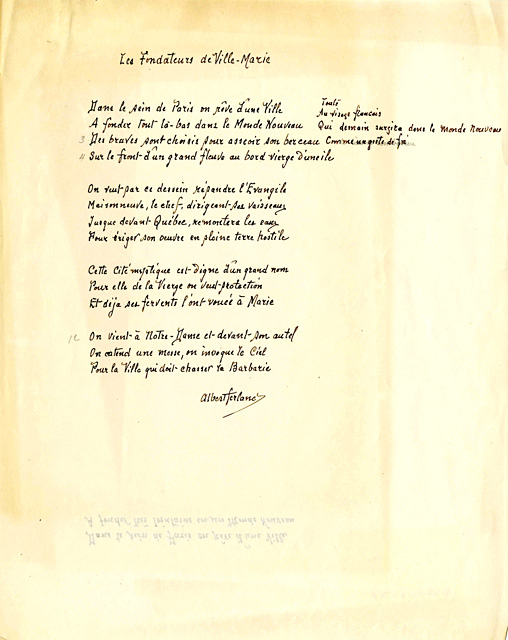 Les Fondateurs de Ville-Marie
Dans le sein de Paris on rêve d'une Ville
A fonder tout là-bas dans le Monde Nouveau
3 Des braves sont choisis pour asseoir son berceau
4 Sur le front d'un grand fleuve au bord vierge d'une île
Toute
Au visage français
Qui demain surgira dans le monde nouveau
Comme un geste de foi
On veut par ce dessein répandre l'Evangile
Maisonneuve, le chef, dirigeant ses vaisseaux
Jusque devant Québec, remontera les eaux
Pour ériger son oeuvre en pleine terre hostile
Cette Cité mystique est digne d'un grand nom
Pour elle de la Vierge on veut protection
Et déjà ses fervents l'ont vouée à Marie
12 On vient à Notre-Dame et devant son autel
On entend une messe, on invoque le Ciel
Pour la Ville qui doit chasser la Barbarie
Albert Ferland
A fonder en un Monde Nouveau
Dans le sein de Paris on rêve d'une Ville